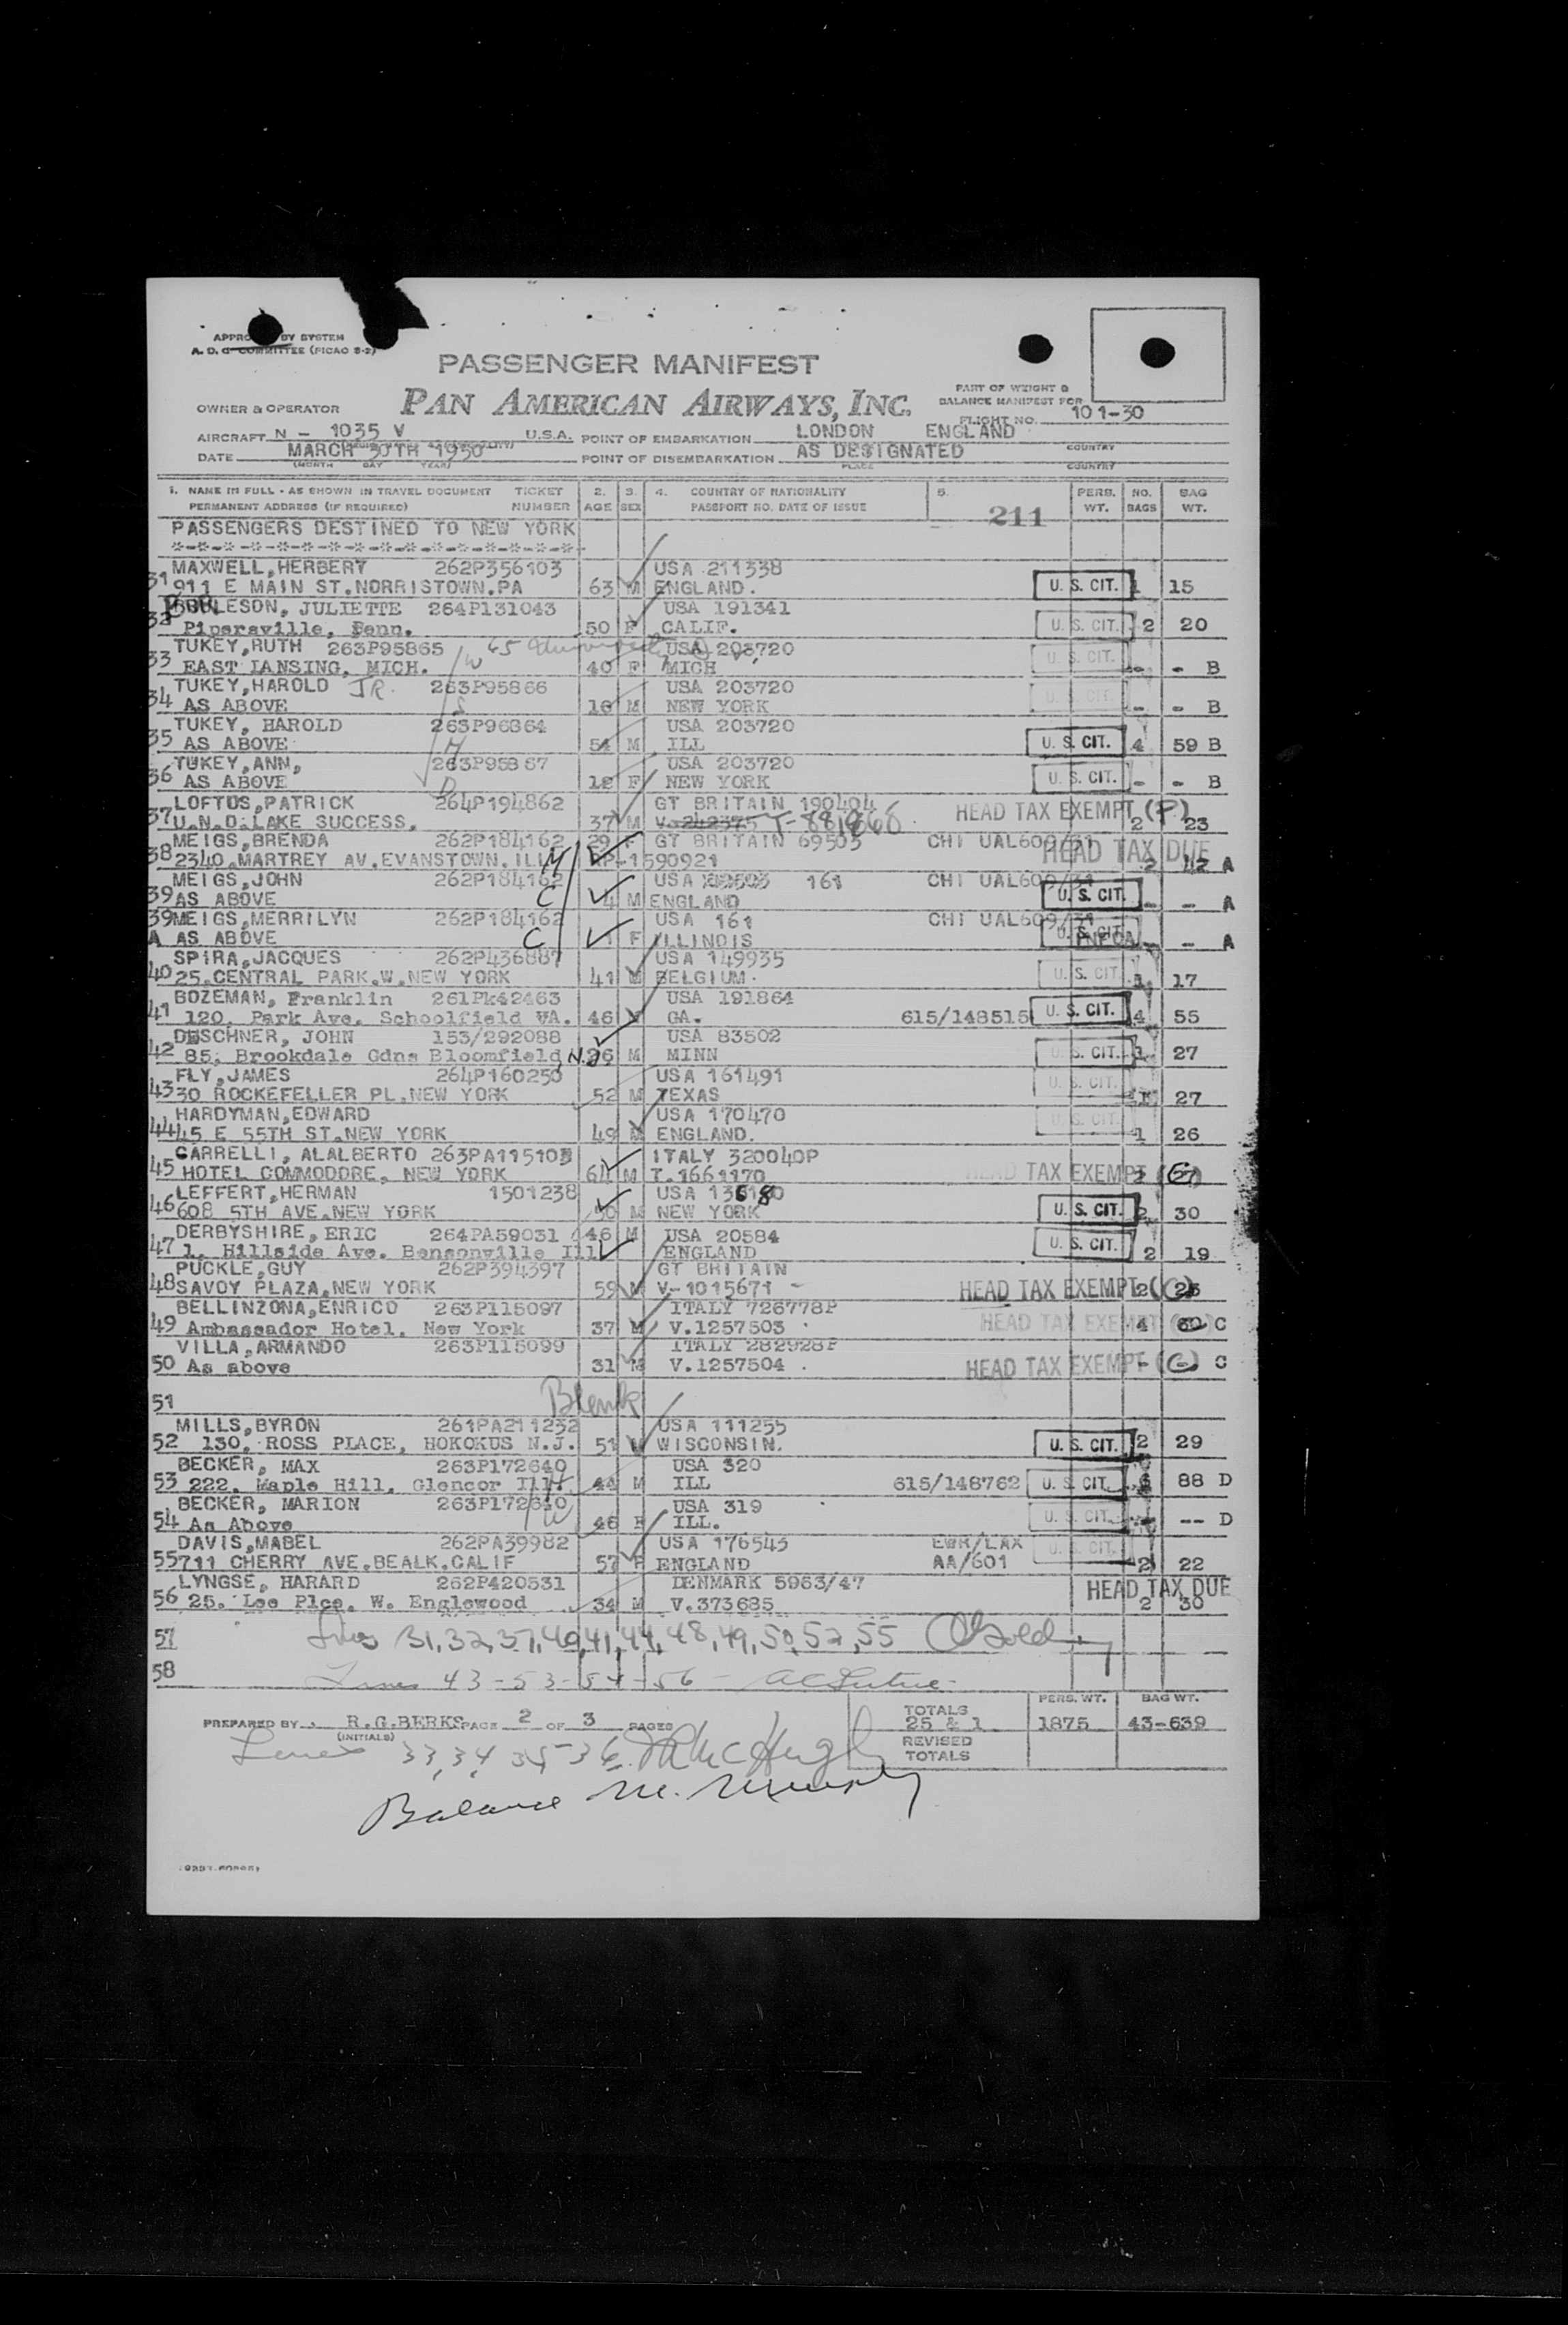 PASSENGER MANIFEST
PAN AMERICAN AIRWAYS, INC.
PART OF WEIGHT &
BALANCE MANIFEST FOR
FLIGHT NO. 101-30
OWNER & OPERATOR
AIRCRAFT N - 1035 V U.S.A. POINT OF EMBARKATION LONDON ENGLAND
DATE MARCH 30TH 1950 POINT OF DISEMBARKATION AS DESIGNATED
(MONTH DAY YEAR) PLACE COUNTRY
1. NAME IN FULL - AS SHOWN IN TRAVEL DOCUMENT TICKET 2. 3. 4. COUNTRY OF NATIONALITY 5. PERS. NO. BAG
PERMANENT ADDRESS (IF REQUIRED) NUMBER AGE SEX PASSPORT NO. DATE OF ISSUE 211 WT. BAGS WT.
PASSENGERS DESTINED TO NEW YORK
MAXWELL,HERBERT 262P356103 USA 211338
31 911 E MAIN ST.NORRISTOWN.PA 63 M ENGLAND. U. S. CIT. 1 15
JULIETTE 264P131043 USA 191341
32 Pipersville, Penn. 50 F CALIF. U. S. CIT. 2 20
TUKEY,RUTH 263P95865 USA 203720
33 EAST LANSING, MICH. W 40 F MICH U. S. CIT. - - B
TUKEY,HAROLD JR. 263P95866 USA 203720
34 AS ABOVE S 16 M NEW YORK U. S. CIT. - - B
TUKEY, HAROLD 263P96864 USA 203720
35 AS ABOVE H 54 M ILL U. S. CIT. 4 59 B
TUKEY,ANN, 263P95867 USA 203720
36 AS ABOVE D 12 F NEW YORK U. S. CIT. - - B
LOFTUS,PATRICK 264P194862 GT BRITAIN 190404 HEAD TAX EXEMPT (P)
37 U.N.O.LAKE SUCCESS. 37 M V-242375 T-881868 2 23
MEIGS,BRENDA 262P184162 29 F GT BRITAIN 69503 CHI UAL609/31
38 2340.MARTREY AV.EVANSTOWN.ILL M RP-1590921 HEAD TAX DUE 2 42 A
MEIGS,JOHN 262P184162 USA 161 CHI UAL609/31
39 AS ABOVE C 4 M ENGLAND U. S. CIT. - - A
39 MEIGS,MERRILYN 262P184162 USA 161 CHI UAL609/31
A AS ABOVE C 1 F ILLINOIS U. S. CIT. - - A
SPIRA,JACQUES 262P436887 USA 149935
40 25.CENTRAL PARK.W.NEW YORK 41 M BELGIUM. U. S. CIT. 1 17
BOZEMAN, Franklin 261Pk42463 USA 191864
41 120. Park Ave. Schoolfield VA. 46 M GA. 615/148515 U. S. CIT. 4 55
DESCHNER, JOHN 153/292088 USA 83502
42 85. Brookdale Gdns Bloomfield N.J. 26 M MINN U. S. CIT. 1 27
FLY,JAMES 264P160250 USA 161491
43 30 ROCKEFELLER PL.NEW YORK 52 M TEXAS U. S. CIT. 1 27
HARDYMAN,EDWARD USA 170470
44 45 E 55TH ST.NEW YORK 49 M ENGLAND. U. S. CIT. 1 26
CARRELLI, ALALBERTO 263PA115103 ITALY 320040P
45 HOTEL COMMODORE, NEW YORK 64 M T.1661170 HEAD TAX EXEMPT
LEFFERT,HERMAN 1501238 USA
46 608 5TH AVE.NEW YORK 50 M NEW YORK U. S. CIT. 2 30
DERBYSHIRE, ERIC 264PA59031 46 M USA 20584
47 1. Hillside Ave. Bensonville Ill ENGLAND U. S. CIT. 2 19
PUCKLE,GUY 262P394397 GT BRITAIN
48 SAVOY PLAZA,NEW YORK 59 M V-1015671 - HEAD TAX EXEMPT 2 25
BELLINZONA,ENRICO 263P115097 ITALY 726778P
49 Ambassador Hotel. New York 37 M V.1257503 HEAD TAX EXEMPT 4 60 C
VILLA,ARMANDO 263P115099 ITALY 282928P
50 As above 31 M V.1257504 . HEAD TAX EXEMPT - C
51 Blank
MILLS,BYRON 261PA211232 USA 111255
52 130. ROSS PLACE, HOKOKUS N.J. 51 M WISCONSIN. U. S. CIT. 2 29
BECKER, MAX 263P172640 USA 320
53 222. Maple Hill. Glencor Ill. H 44 M ILL 615/148762 U. S. CIT. 88 D
BECKER, MARION 263P172640 USA 319
54 As Above W 46 F ILL. U. S. CIT. -- D
DAVIS,MABEL 262PA39982 USA 176543 EWR/LAX
55 711 CHERRY AVE.BEALK.CALIF 57 F ENGLAND AA/601 U. S. CIT. 2 22
LYNGSE, HARARD 262P420531 DENMARK 5963/47 HEAD TAX DUE
56 25. Lee Plce. W. Englewood 34 M V.373685 2 30
57 Lines 31,32,37,40,41,44,48,49,50,52,55
58 Lines 43-53-54-56
PERS. WT. BAG WT.
PREPARED BY R.G.BERKS PAGE 2 OF 3 PAGES TOTALS 25 & 1 1875 43-639
(INITIALS) REVISED TOTALS
Lines 33,34 35-36. McHugh
Balance M. Murphy